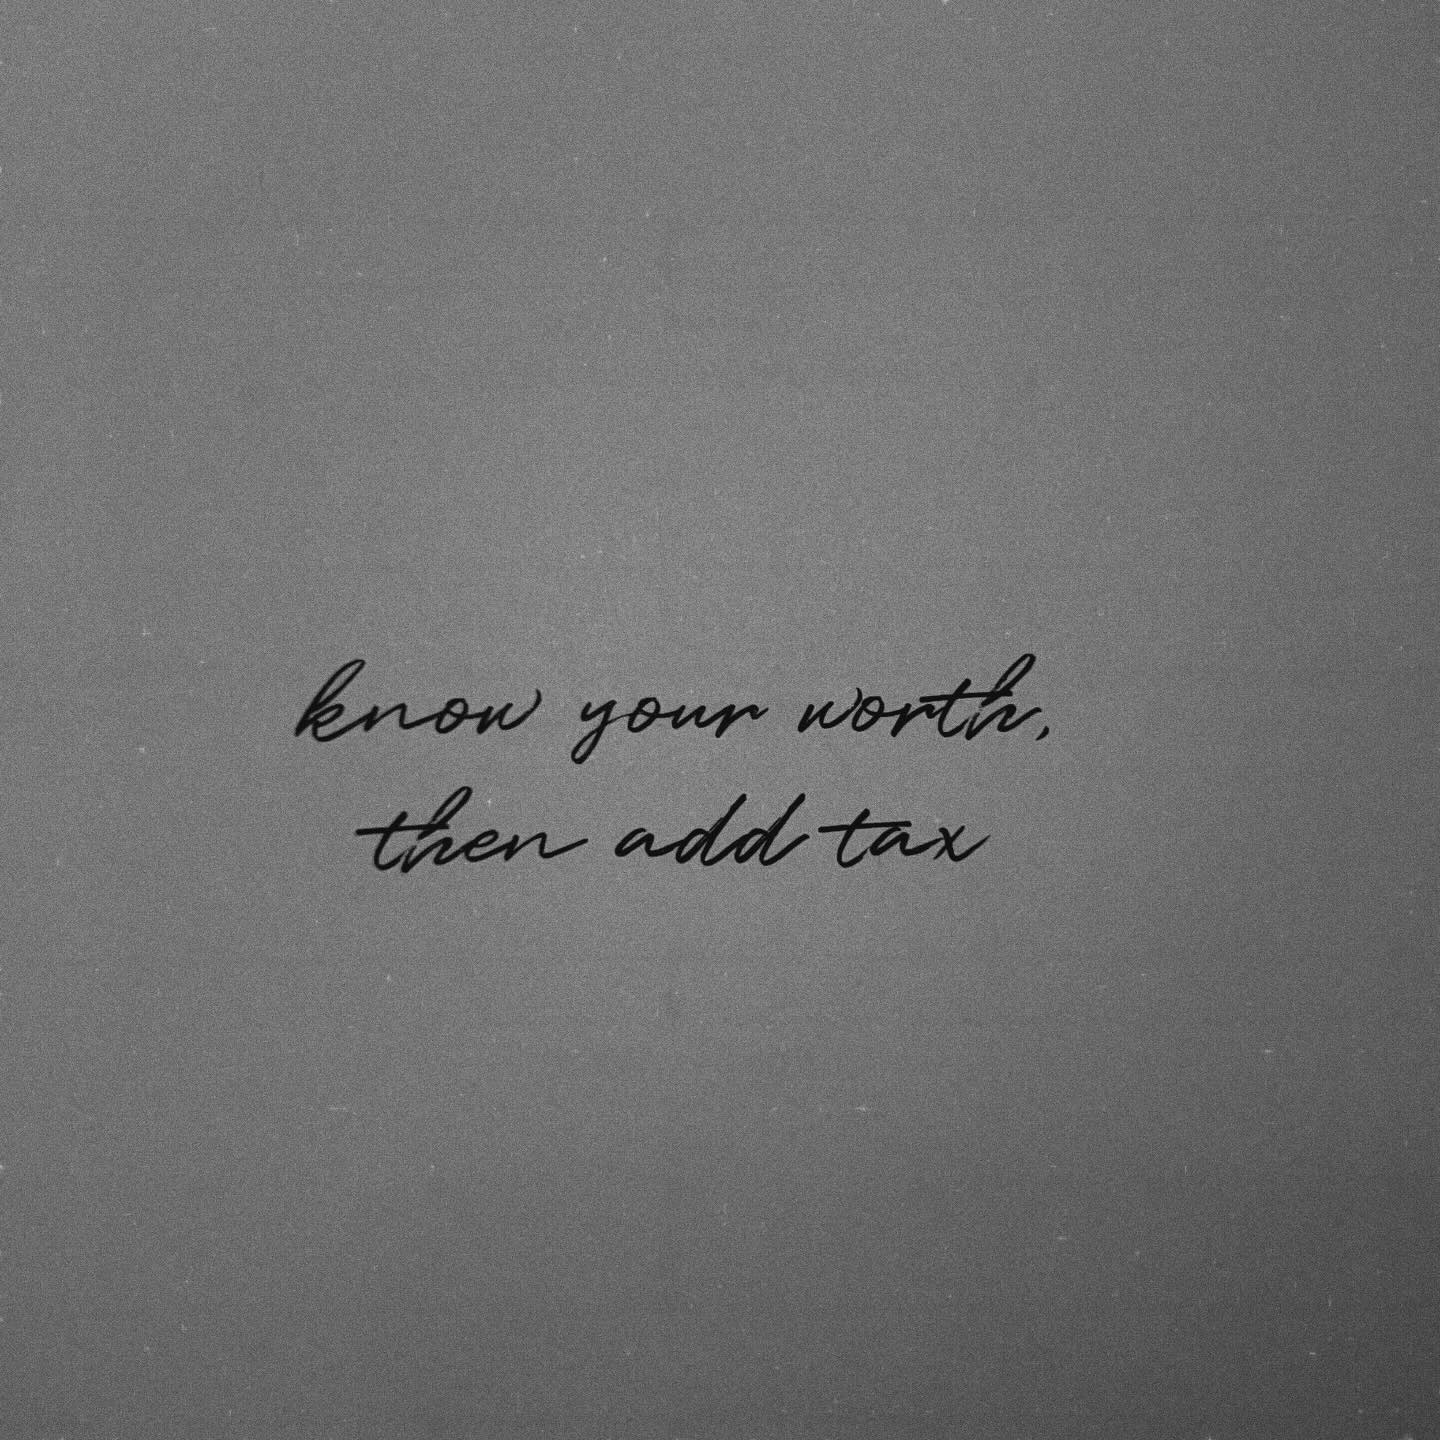 know your worth,
then add tax